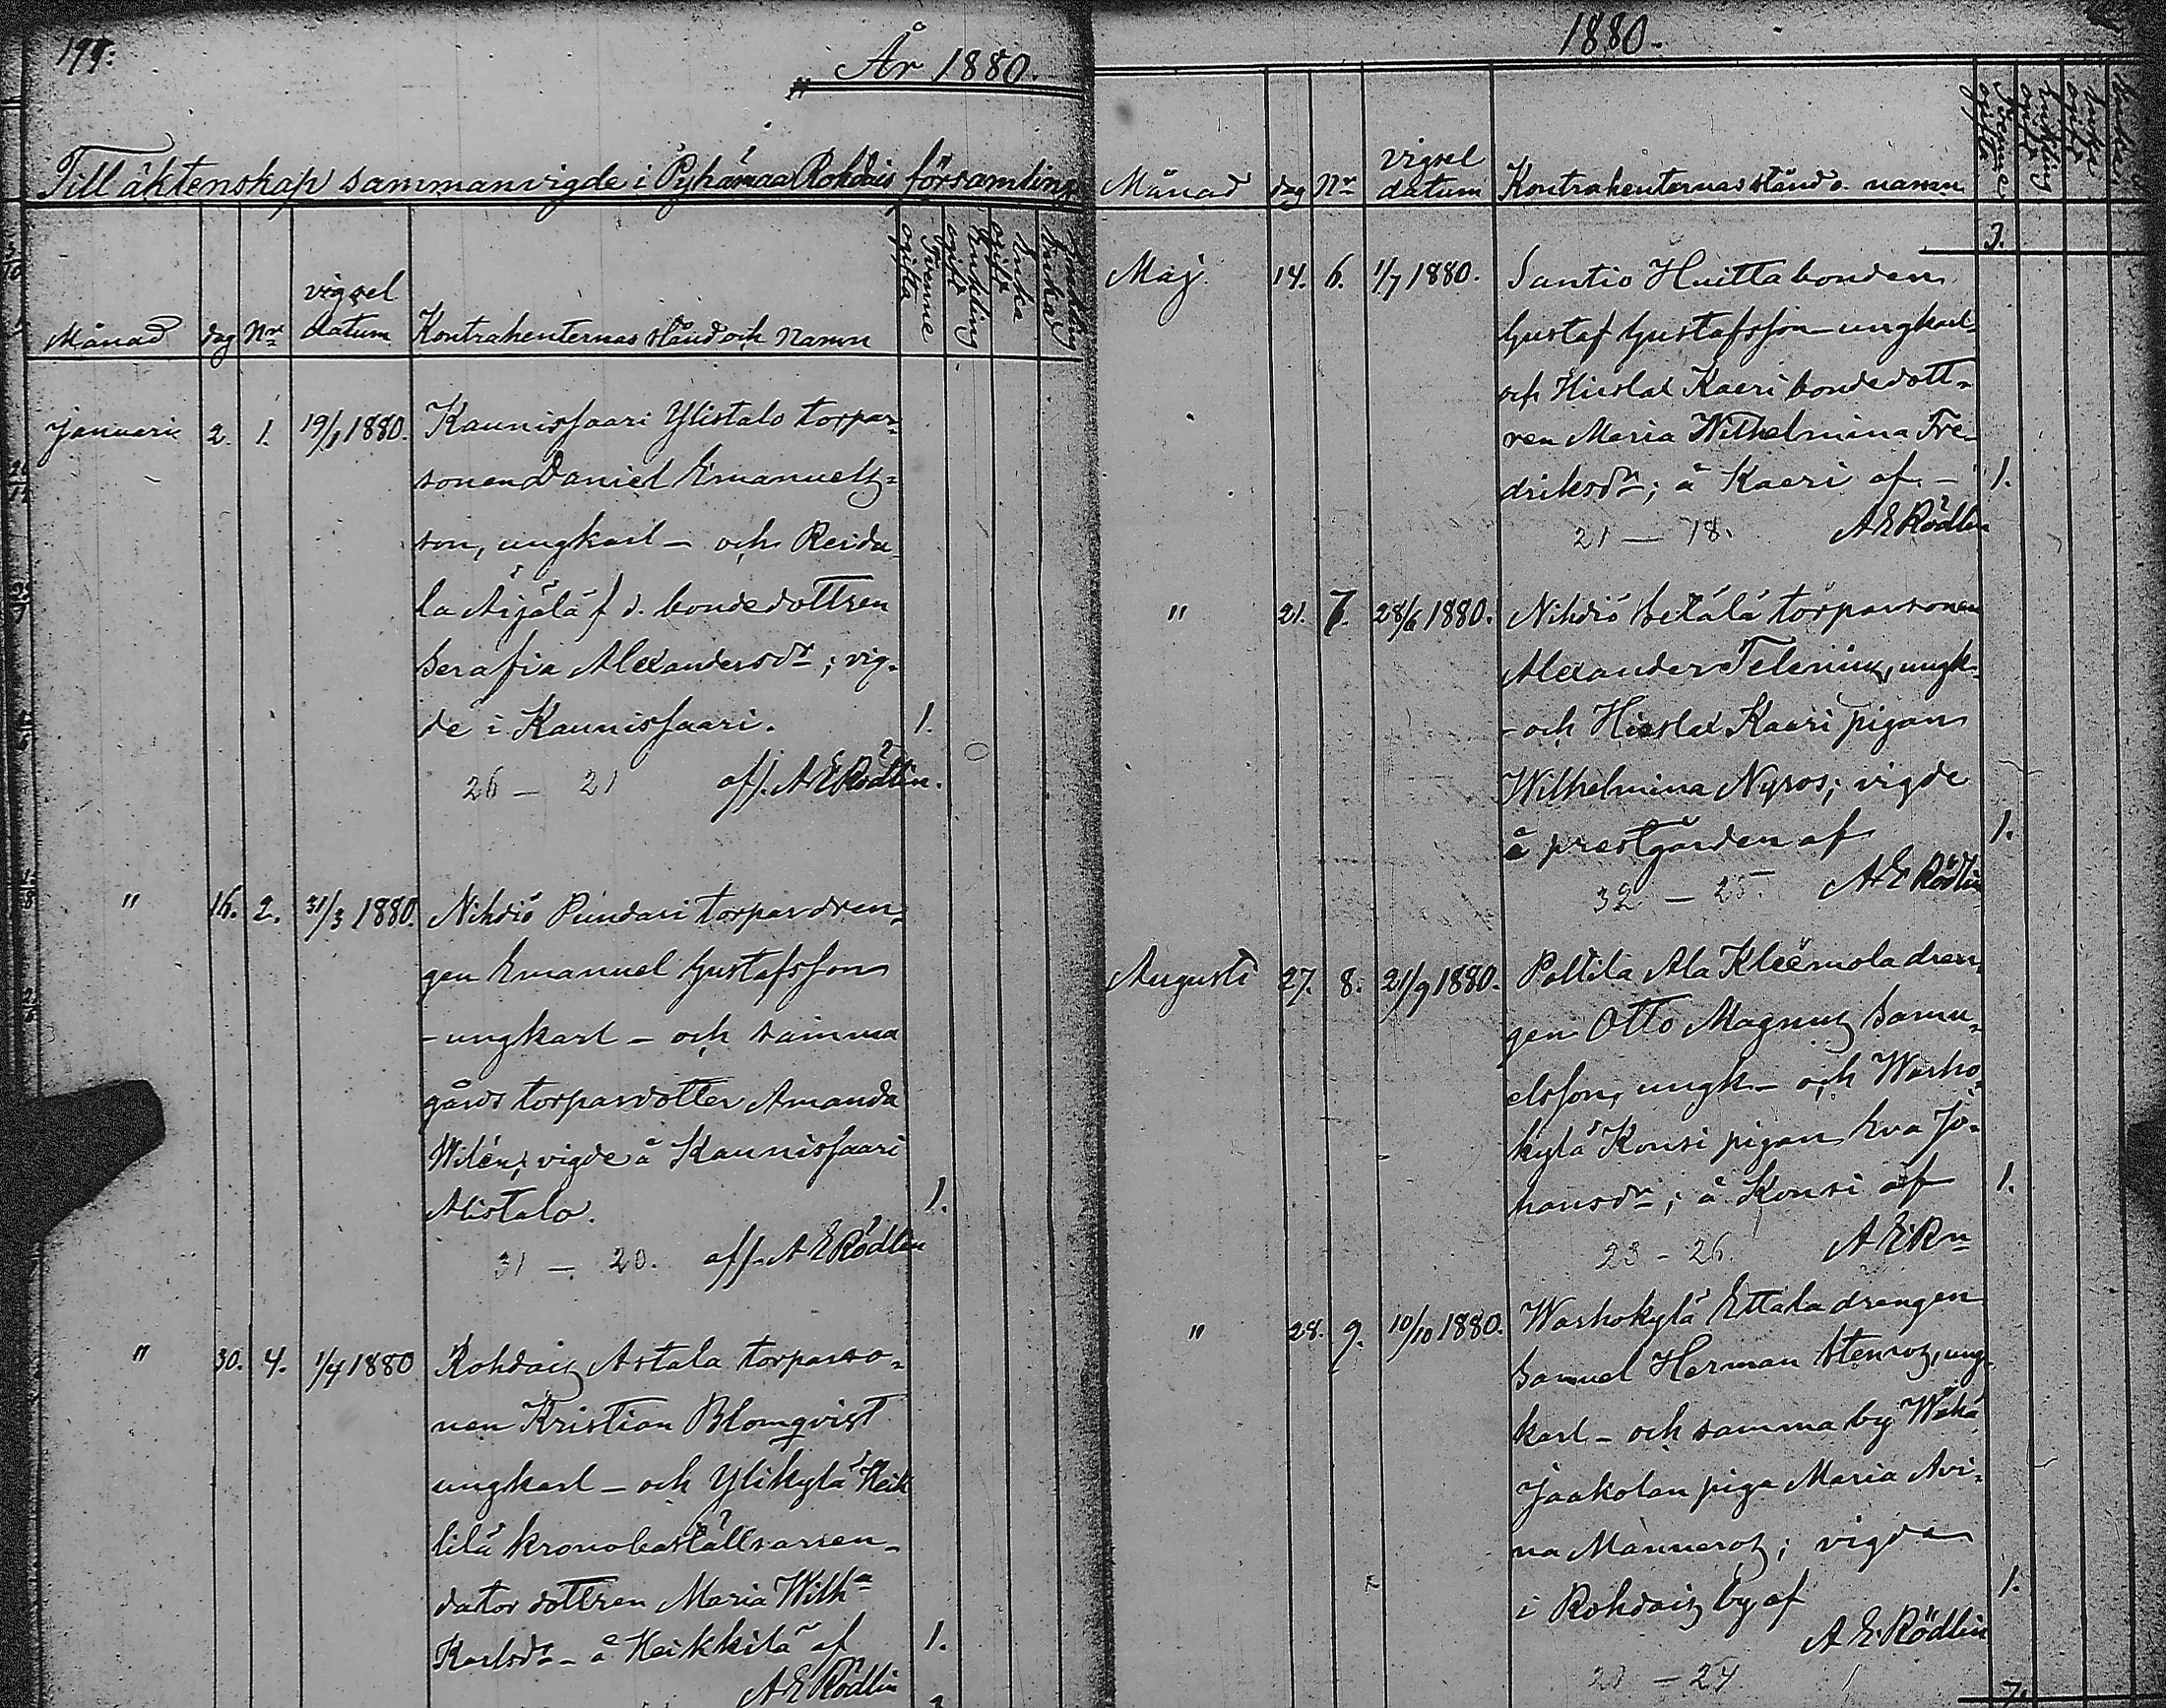 År 1880.
Till äktenskap sammanvigde i Pyhämaa Rohdais församling
Månad dag Nr vigsel datum Kontrahenternas stånd och Namn
Januari 2. 1. 19/1 1880. Kaunissaari Ylistalo torpar-
sonen Daniel Emanuels-
son, ungkarl – och Reidu-
la Äijälä f d. bondedottren
Serafia Alexandersdr; vig-
de i Kaunissaari. 1.
26 – 21 aff. A E Rödlin.
" 16. 2. 31/3 1880. Nihdiö Pundari torpardren-
gen Emanuel Gustafsson
– ungkarl – och samma
gårds torpardotter Amanda
Wilén; vigde å Kaunissaari
Alistalo. 1.
31 – 20. aff. A E Rödlin
" 30. 4. 1/4 1880 Rohdais Astala torparso-
nen Kristian Blomqvist
ungkarl – och Ylikylä Heik
kilä kronobeställsarren-
dator dottren Maria Wilha
Karlsdr – å Heikkilä af 1.
A E Rödlin
1880.
Månad dag Nr vigsel datum Kontrahenternas stånd o. namn
3.
Maj. 14. 6. 1/7 1880. Santio Huitta bonden
Gustaf Gustafsson – ungkarl
och Hirslax Kaeri bondedott-
ren Maria Wilhelmina Fre-
driksdr; å Kaeri af – 1.
21 – 18. A E Rödlin
" 21. 7. 28/6 1880. Nihdiö Setälä torparsonen
Alexander Telenius, ungk.
– och Hirslax Kaari pigan
Wilhelmina Nyros; vigde
å prestgården af 1.
32 – 25. A E Rödlin
Augusti 27. 8. 21/9 1880. Polttila Ala Kleemola dren-
gen Otto Magnus Samu-
elsson, ungk – och Warho-
kylä Konsi pigan Eva Jo-
hansdr; å Konsi af 1.
23 – 26. A E Rn
" 28. 9. 10/10 1880. Warhokylä Ettala drengen
Samuel Herman Stenros, ung-
karl – och samma by Wähä
Jaakolan piga Maria Avi-
na Manneros; vigde
i Rohdais by af 1.
A E. Rödlin
– 24
7.